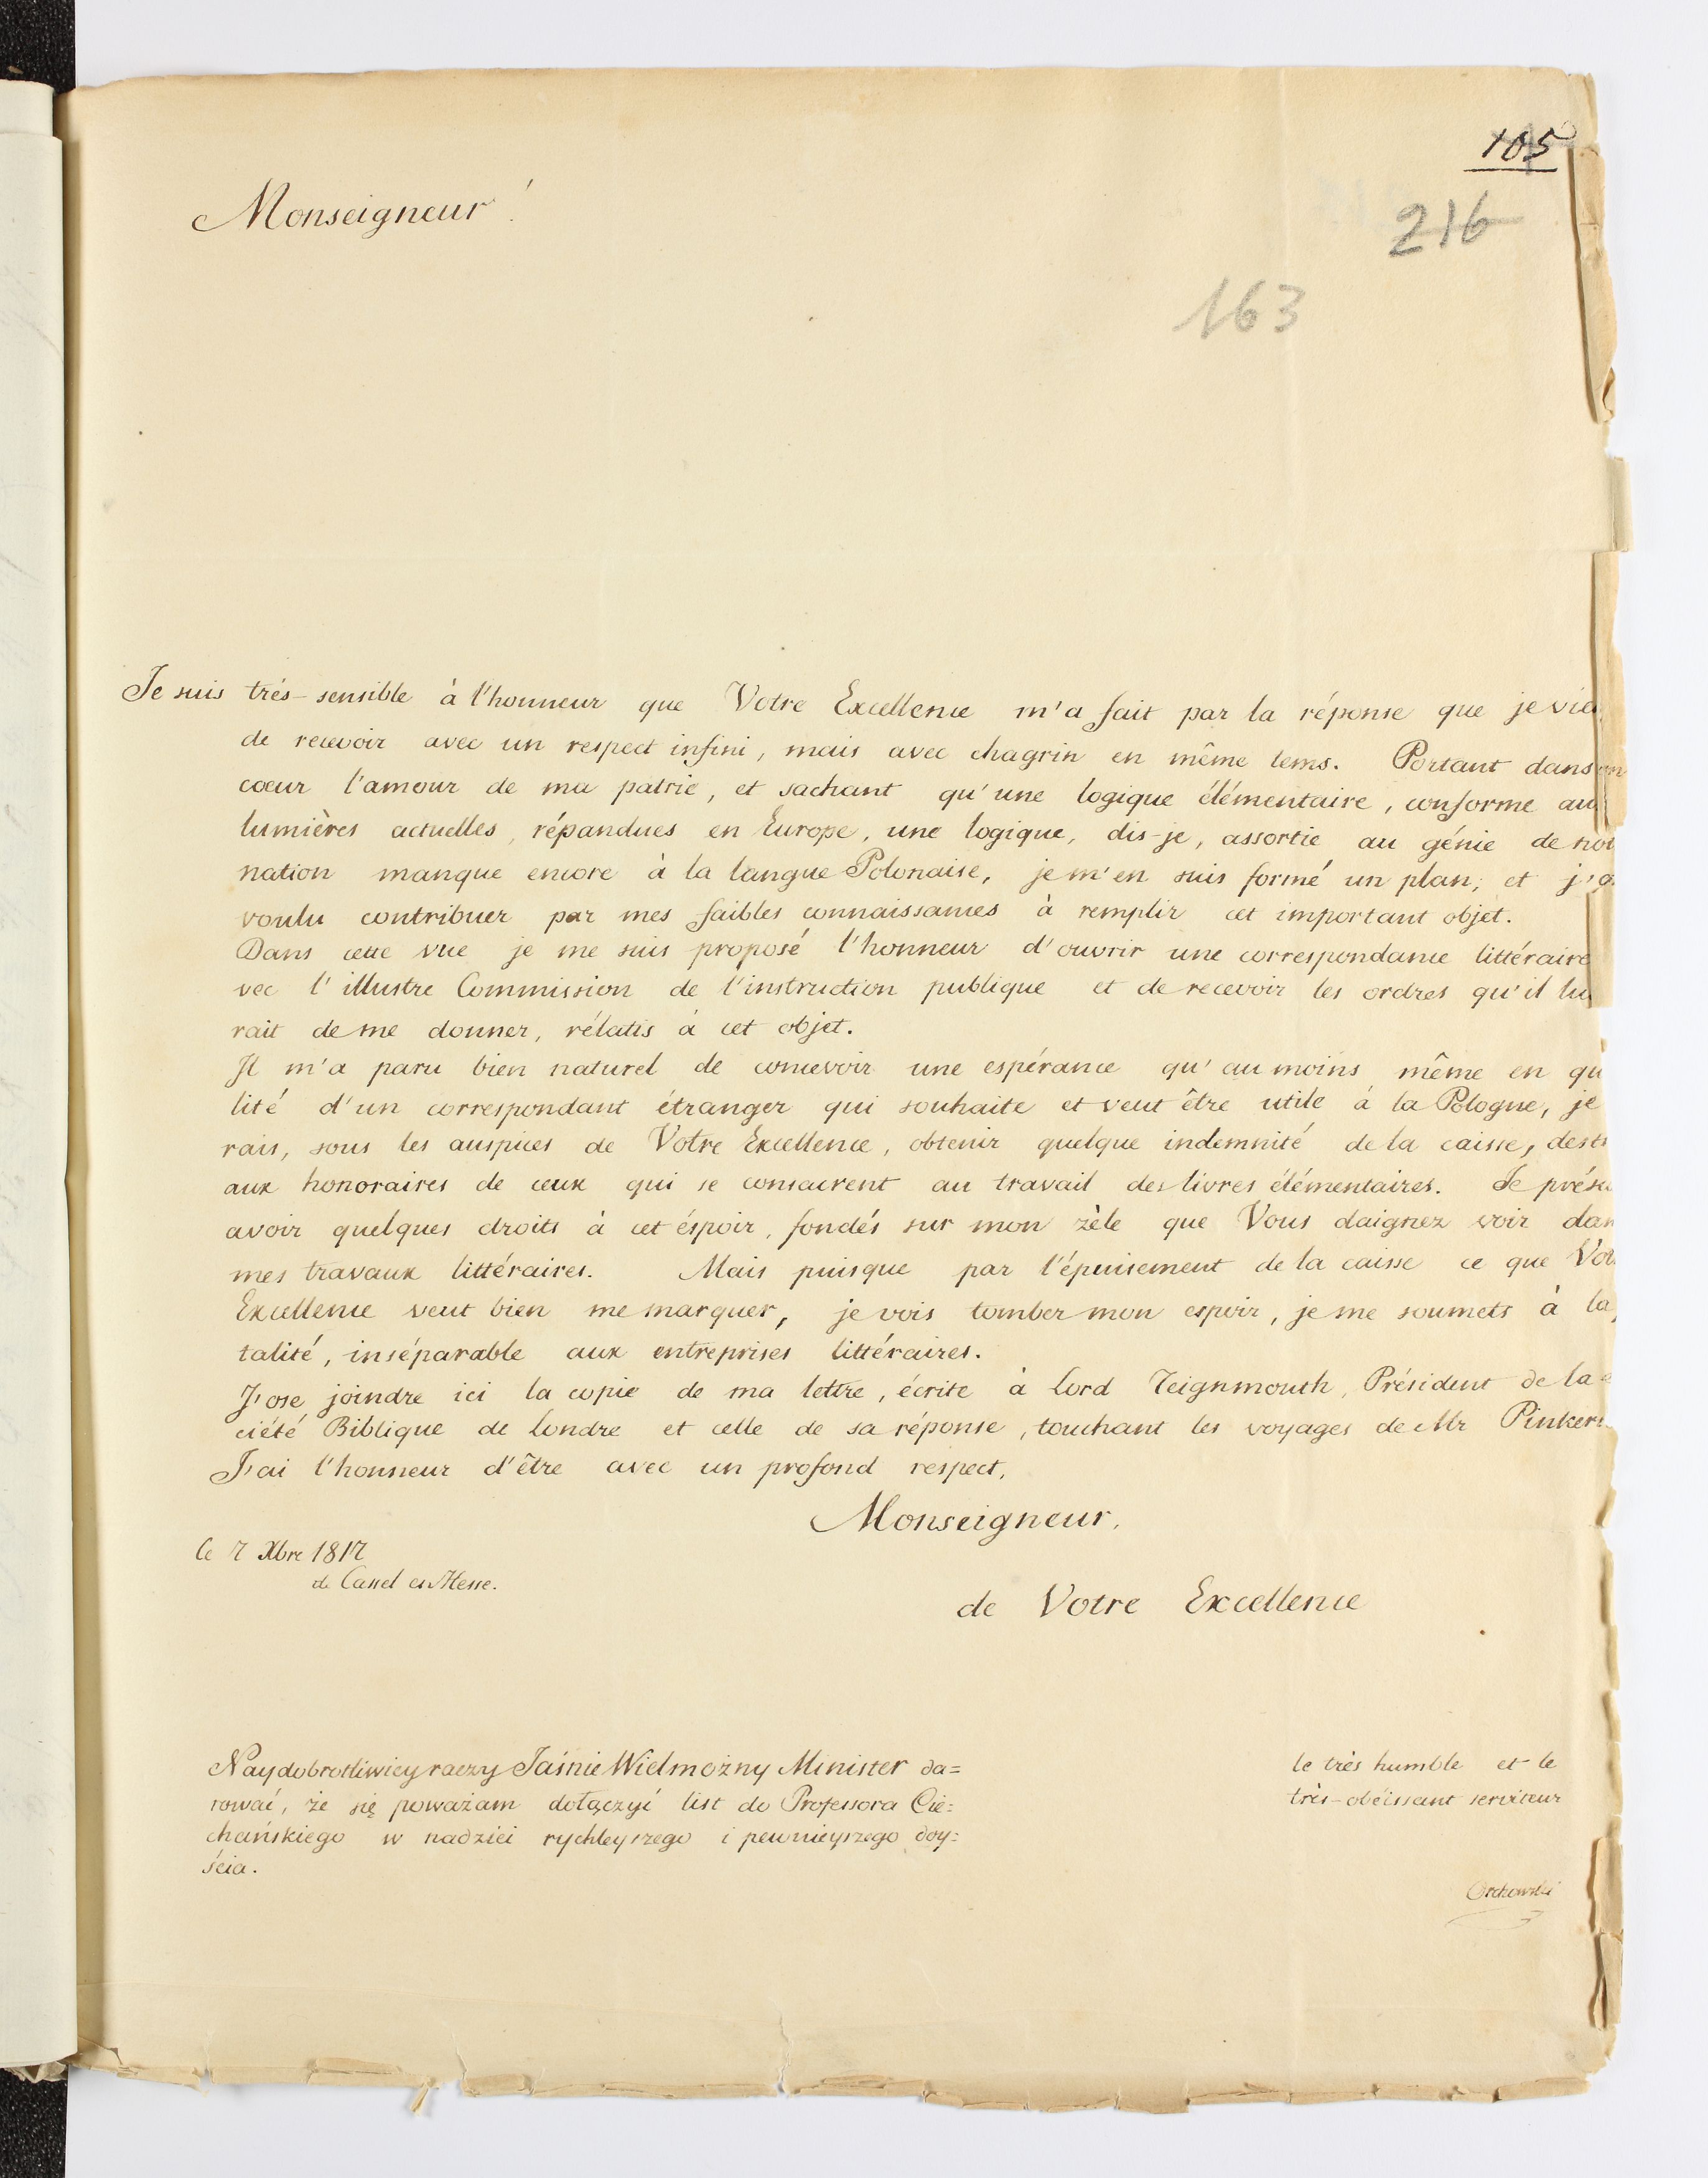 105
Monseigneur!
216
163
Je suis trés-sensible à l'honneur que Votre Excellence m'a fait par la réponse que je vie
de recevoir avec un respect infini, mais avec chagrin en même tems. Portant dans
cœur l'amour de ma patrie, et sachant qu'une logique élémentaire, conforme au
lumières actuelles, répandues en Europe, une logique, dis-je, assortie au génie de not
nation manque encore à la langue Polonaise, je m'en suis formé un plan; et j'a
voulu contribuer par mes faibles connaissances à remplir cet important objet.
Dans cette vue je me suis proposé l'honneur d'ouvrir une correspondance littéraire
vec l'illustre Commission de l'instruction publique et de recevoir les ordres qu'il lu
rait de me donner, rélatis à cet objet.
Il m'a paru bien naturel de concevoir une espérance qu'au moins même en qu
lité d'un correspondant étranger qui souhaite et veut être utile à la Pologne, je
rais, sous les auspices de Votre Excellence, obtenir quelque indemnité de la caisse, dest
aux honoraires de ceux qui se consacrent au travail des livres élémentaires. Je présu
avoir quelques droits à cet éspoir, fondés sur mon zèle que Vous daignez voir dan
mes travaux littéraires. Mais puisque par l'épuisement de la caisse ce que Vot
Excellence veut bien me marquer, je vois tomber mon espoir, je me soumets à la
talité, inséparable aux entreprises littéraires.
J'ose joindre ici la copie de ma lettre, écrite à Lord Teignmouth, Président de la
ciété Biblique de Londre et celle de sa réponse, touchant les voyages de Mr Pinkert
J'ai l'honneur d'être avec un profond respect,
Monseigneur,
le 7 Xbre 1817
de Cassel en Hesse.
de Votre Excellence
Naydobrotliwiey raczy Jaśnie Wielmożny Minister da=
rować, że się poważam dołączyć list do Professora Cie=
chańskiego w nadziei rychleyszego i pewnieyszego doy=
ścia.
le très humble et le
très-obéissant serviteur
Orchowski